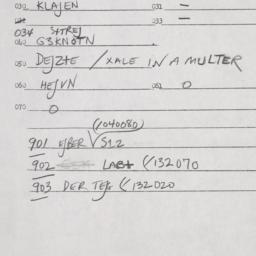 030 KLAJEN 031 –
033 –
034 SXTREJ
040 G3KNOTN
050 DEJZTE / XALE IN A MULTER
060 HEJVN 061 0
070 0
(1040080)
901 EJBER √512
902 LABT (/132070
903 DER TEJS (/132020